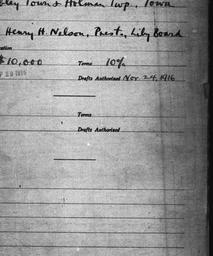 ley Town & Holman Twp., Iowa
Henry H. Nelson, Prest., Liby Board
ation
$10,000 Terms 10%
P 29 1916
Drafts Authorized Nov 24, 1916
Terms
Drafts Authorized